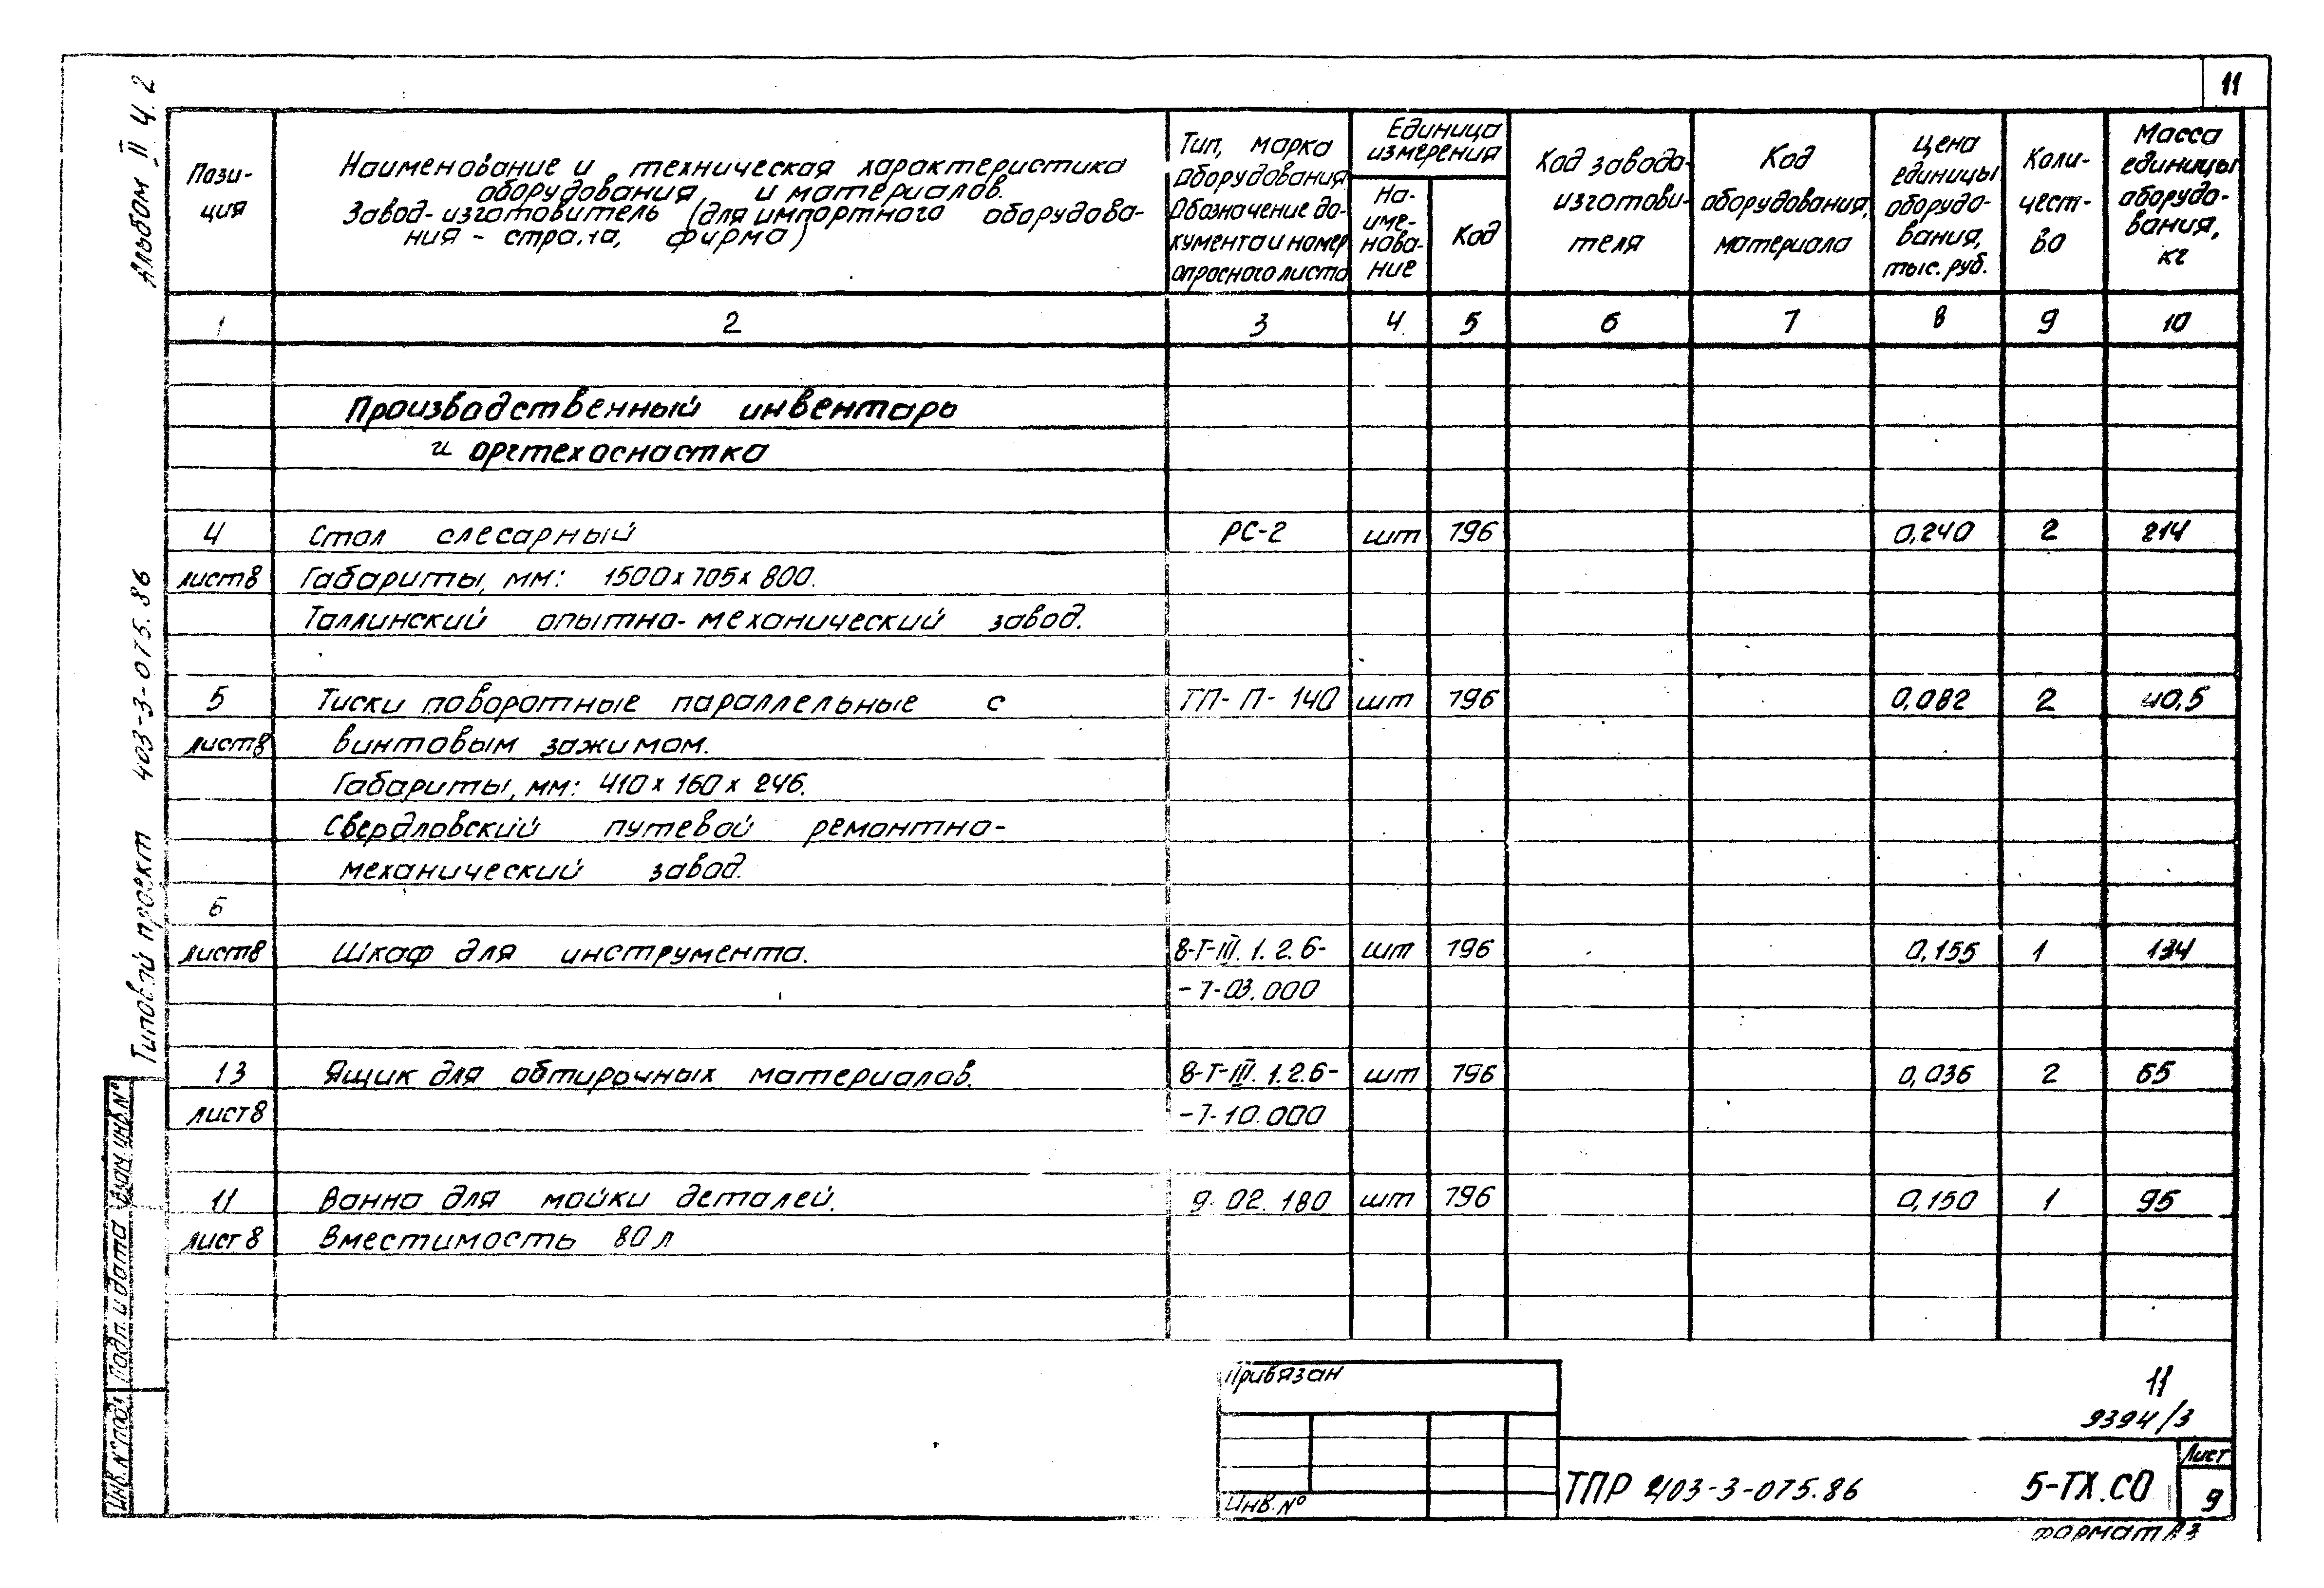 11
Альбом II ч. 2
Типовой проект 403-3-075.86
Пози-
ция
Наименование и техническая характеристика
оборудования и материалов.
Завод-изготовитель (для импортного оборудова-
ния - страна, фирма)
Тип, марка
оборудования.
Обозначение до-
кумента и номер
опросного листа
Единица
измерения
На-
име-
нова-
ние
Код
Код завода-
изготови-
теля
Код
оборудования,
материала
Цена
единицы
оборудо-
вания,
тыс. руб.
Коли-
чест-
во
Масса
единицы
оборудо-
вания,
кг
1 2 3 4 5 6 7 8 9 10
Производственный инвентарь
и оргтехоснастка
4 Стол слесарный РС-2 шт 796 0,240 2 214
лист 8 Габариты, мм: 1500х705х800.
Таллинский опытно-механический завод.
5 Тиски поворотные параллельные с ТП-П-140 шт 796 0,082 2 40,5
лист 8 винтовым зажимом.
Габариты, мм: 410х160х246.
Свердловский путевой ремонтно-
механический завод.
6
лист 8 Шкаф для инструмента. 8-Т-III.1.2.6- шт 796 0,155 1 134
-7-03.000
13 Ящик для обтирочных материалов. 8-Т-III.1.2.6- шт 796 0,036 2 65
лист 8 -7-10.000
11 Ванна для мойки деталей. 9.02.180 шт 796 0,150 1 95
лист 8 Вместимость 80 л
Инв. № подл. Подп. и дата Взам. инв. №
Привязан
Инв. №
11
9394/3
ТПР 403-3-075.86 5-ТХ.СО
Лист
9
формат А3